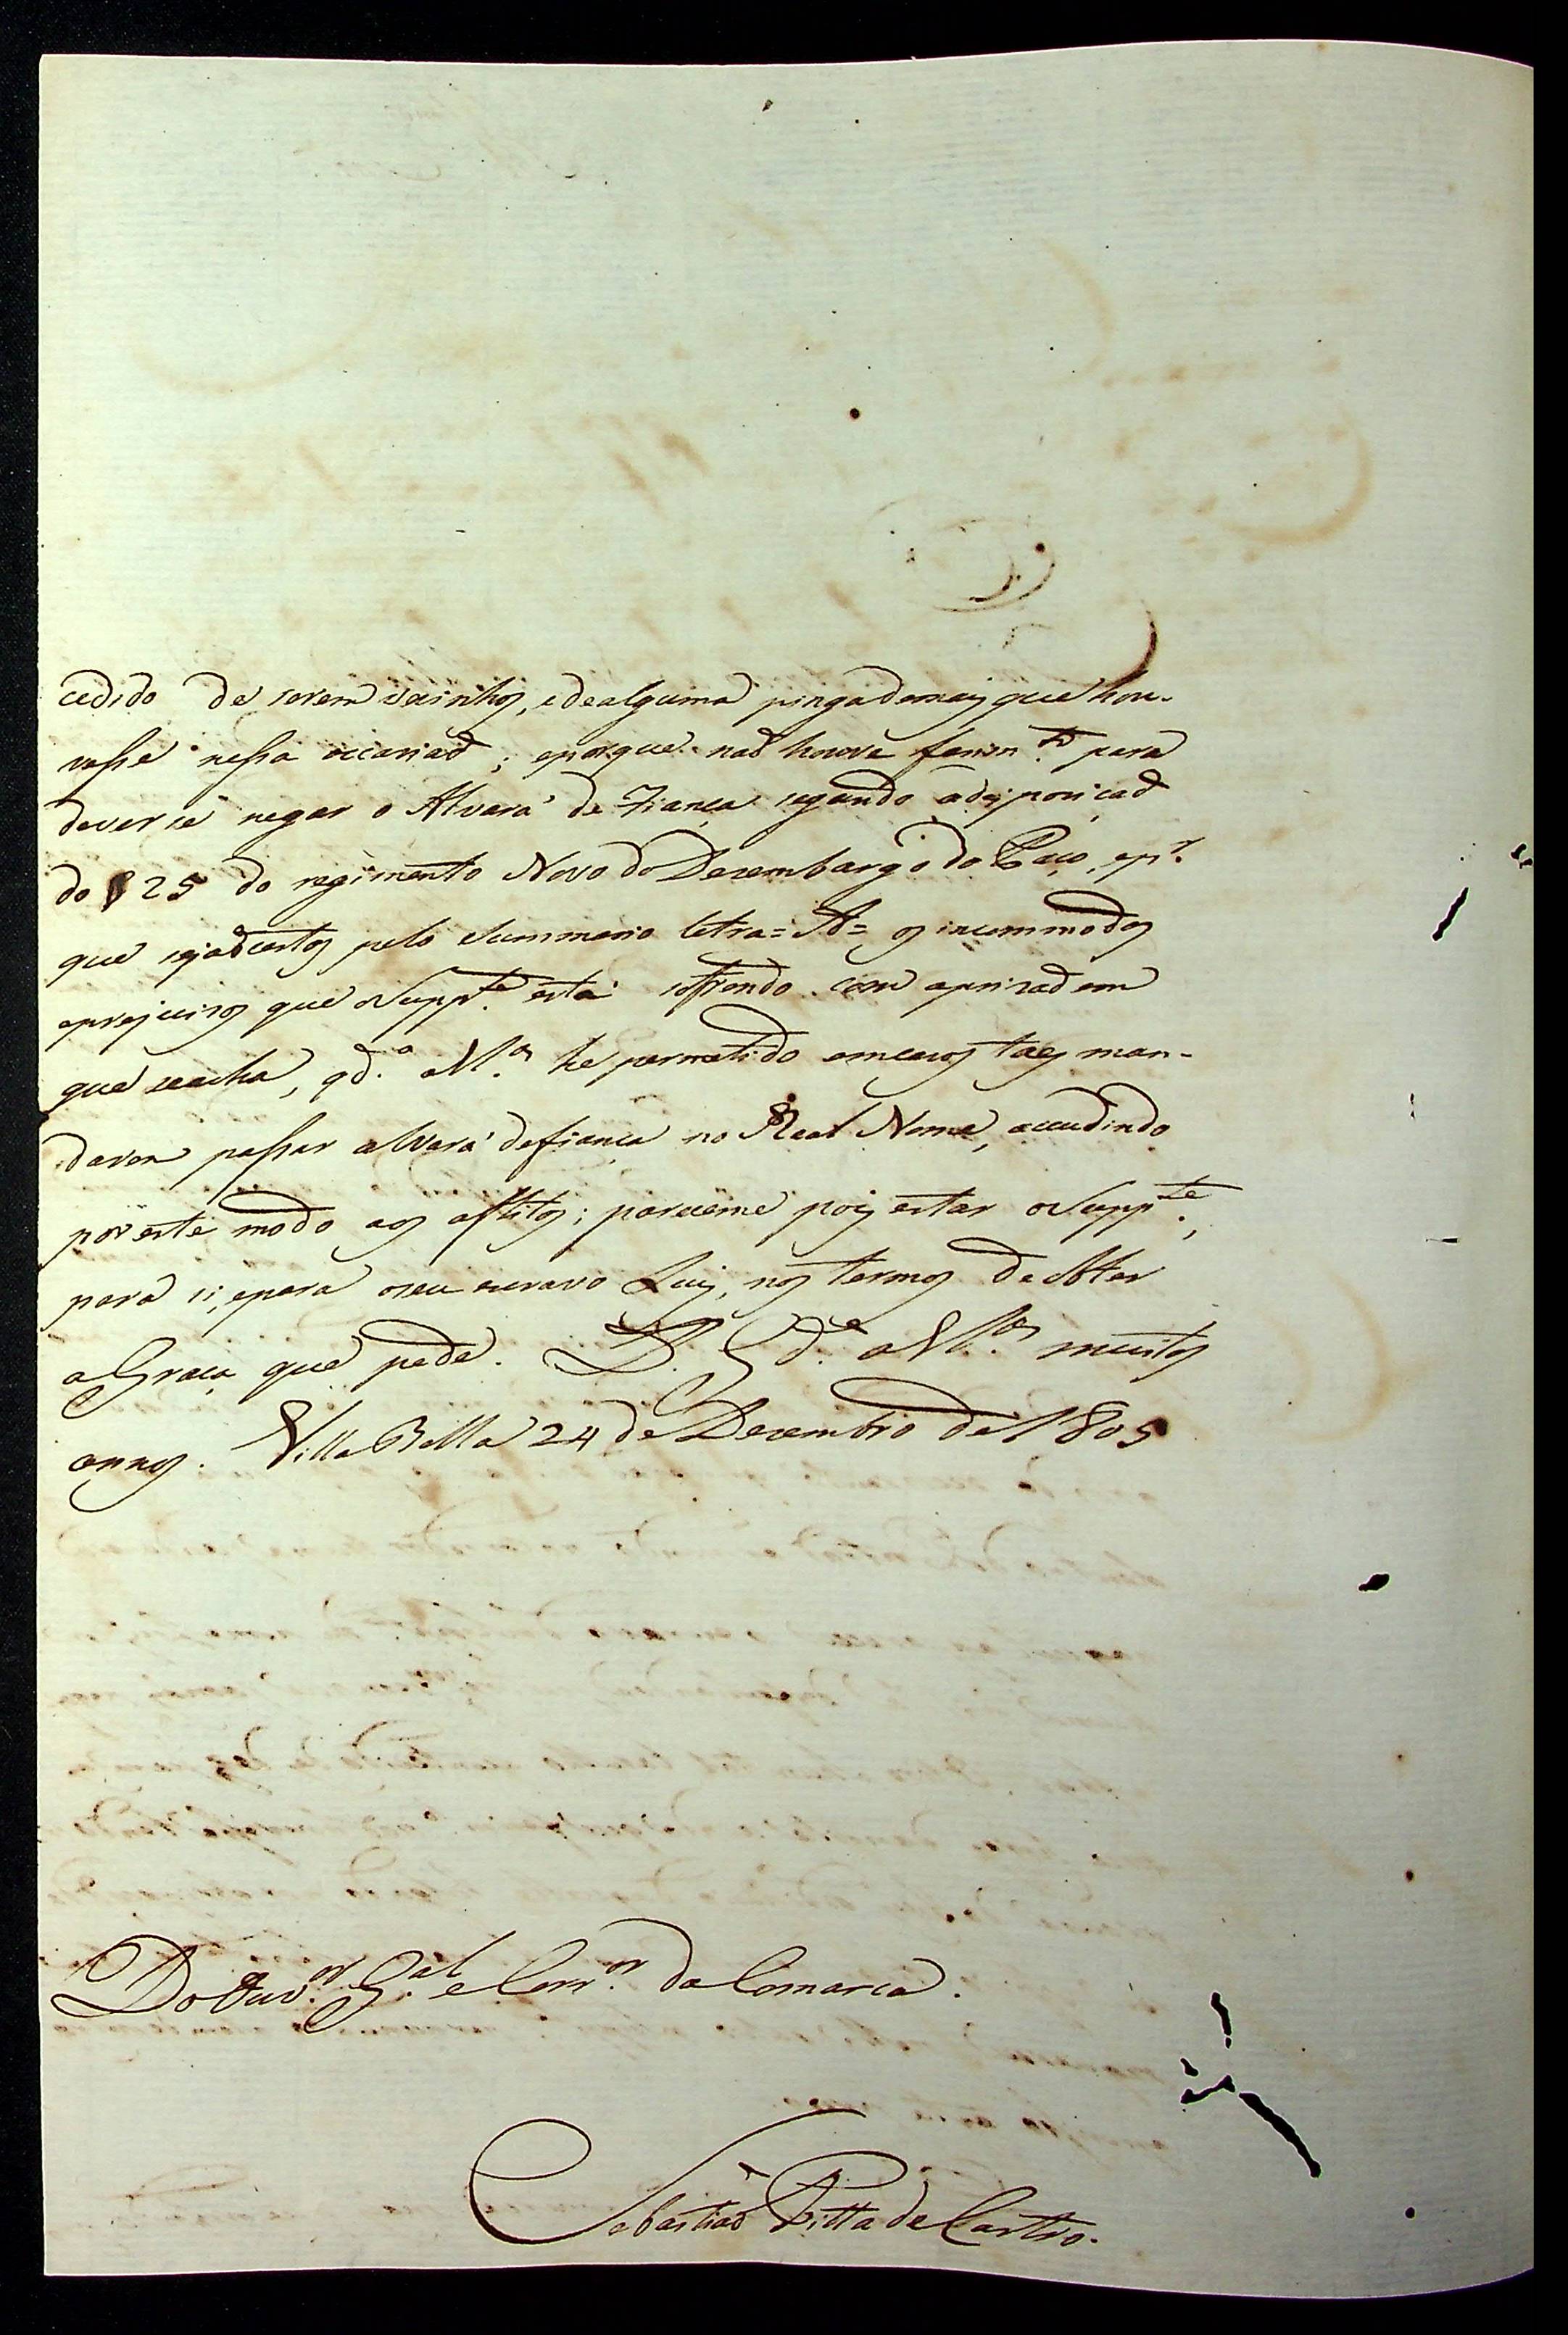 cedido de serem vezinhos, e de alguma pinga demais que hou-
vesse nessa occasiaõ; e porque naõ houve ferim.to para
dever se negar o Alvará de Fiança segundo a disposiçaõ
do § 25 do regimento Novo do Dezembargo do Paço, e p.r
que sejaõ certos pelo Summario letra = A = os incommodos
e prejuizos que o Supp.te está sofrendo com a prizaõ em
que se acha, q.do a V. A. he permetido em cazos taes man-
darem passar alvará de fiança no Real Nome, accudindo
por este modo aos aflitos; pareceme pois estar o Supp.te,
para si, e para o seu escravo Luiz, nos termos de obter
a Graça que pede. D. G.de a V. A. muitos
annos. Villa Bella 24 de Dezembro de 1805
Do Ouv.or G.al e Corr.or da Comarca.
Sebastiaõ Pitta de Castro.